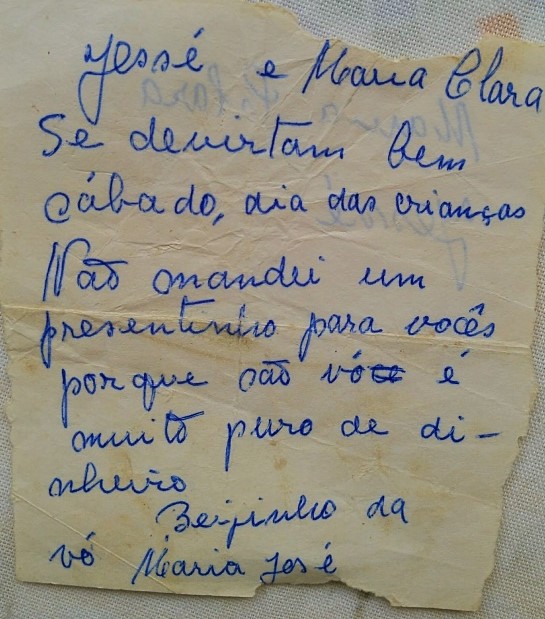 Jessé e Maria Clara
Se devirtam bem
sábado, dia das crianças
Não mandei um
presentinho para vocês
porque são vó é
muito puro de di-
nheiro
Beijinho da
vó Maria José